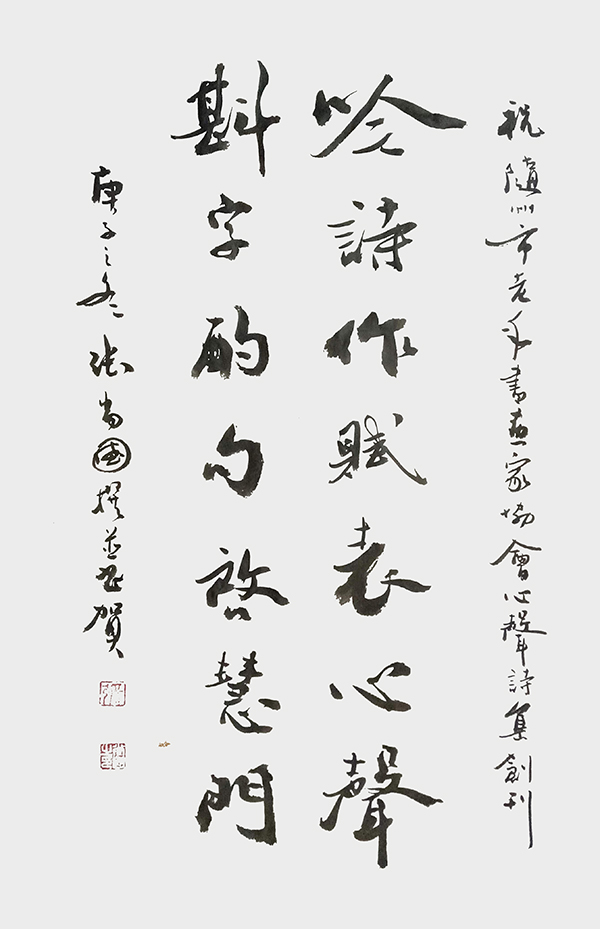 祝隨州市老年書画家協會心聲詩集創刊
吟詩作賦表心聲
斟字酌句啟慧門
庚子之冬張尚國撰並書賀